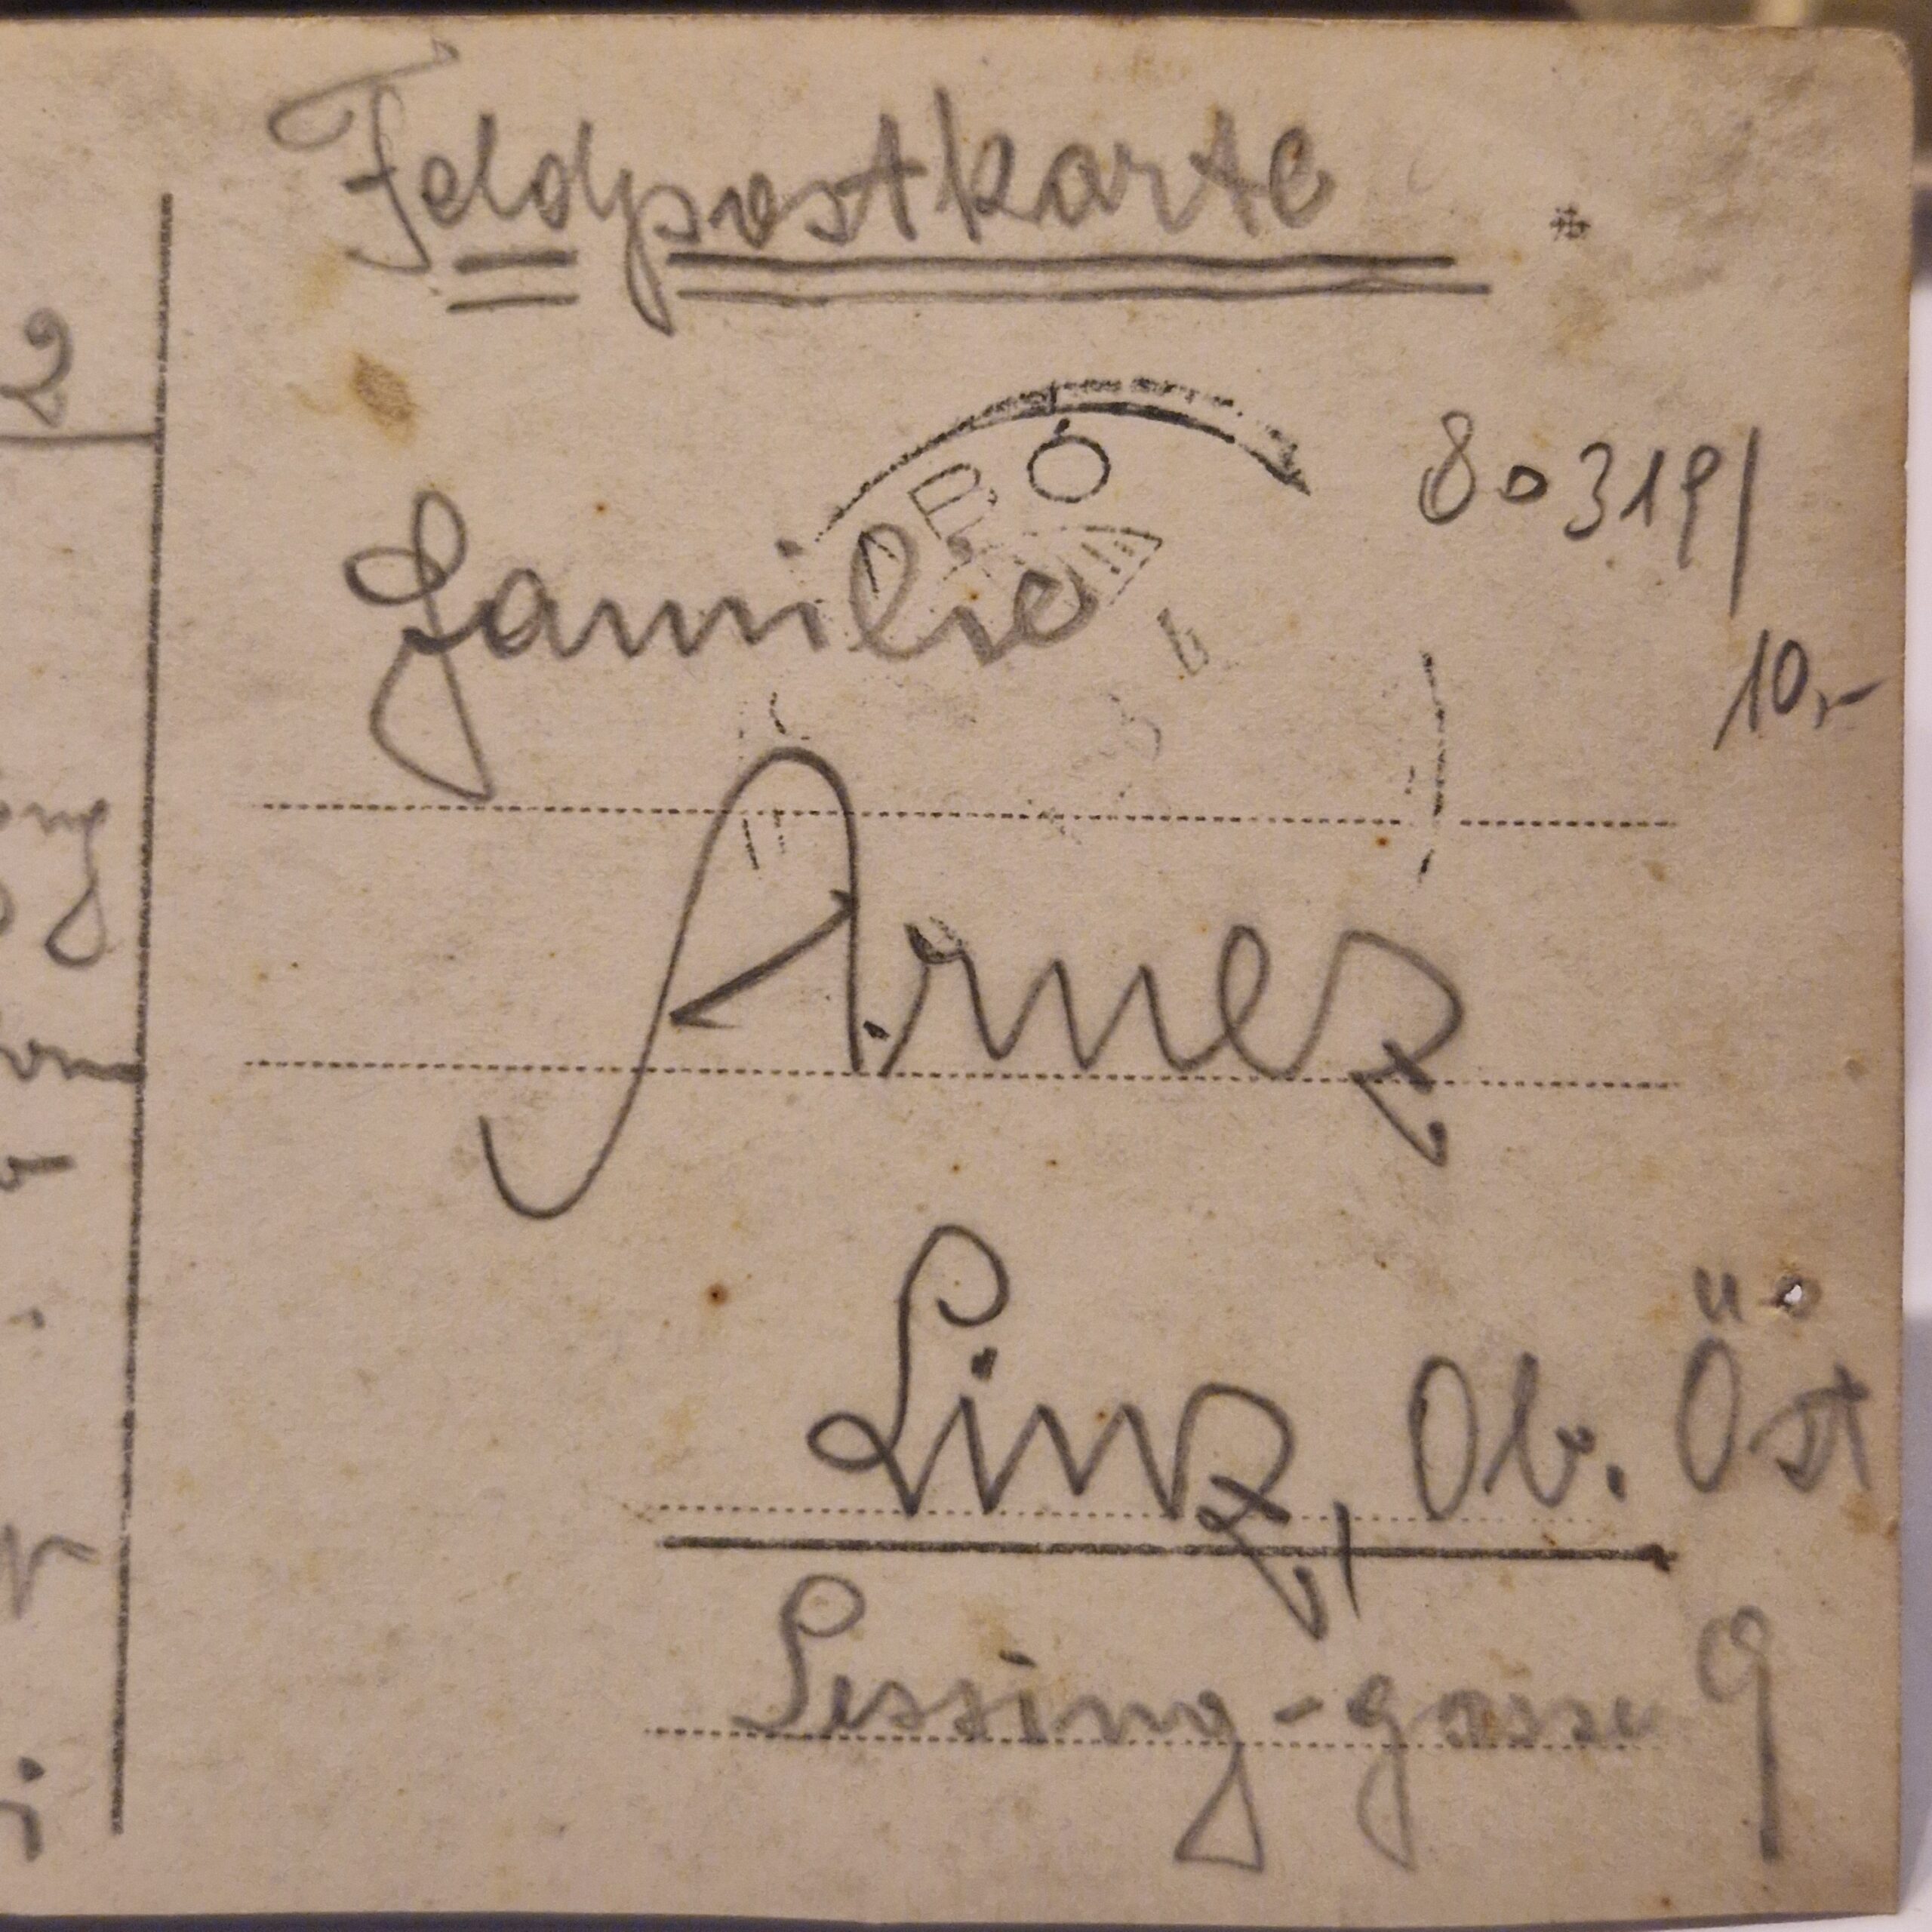 Feldpostkarte
2
803191
10,-
Familie
Arnez
Linz, Ob. Öst
Lessing-gasse 9